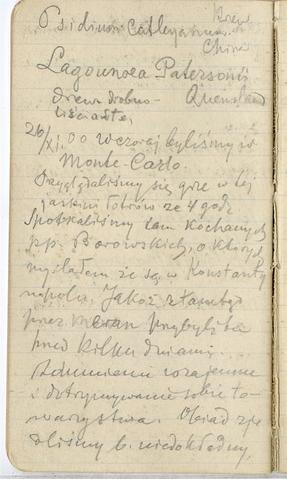 Psidium Catleyanum drzew
China
Lagounoea Patersonii
drzewo drobno- Quensland
listiaste,
26/XI.00 Wczoraj byliśmy w
Monte-Carlo.
Przyglądaliśmy się grze w tej
jaskini łotrów ze 4 godz.
Spotkaliśmy tam kochanych
pp. Borowskich, o których
myślałem że są w Konstanty
nopolu. Jakoż stamtąd
przez przybyli tu
przed kilku dniami.
Zdumienie wzajemne
i dotrzymywanie sobie to-
warzystwa. Obiad zje
dliśmy b. niedokładny,